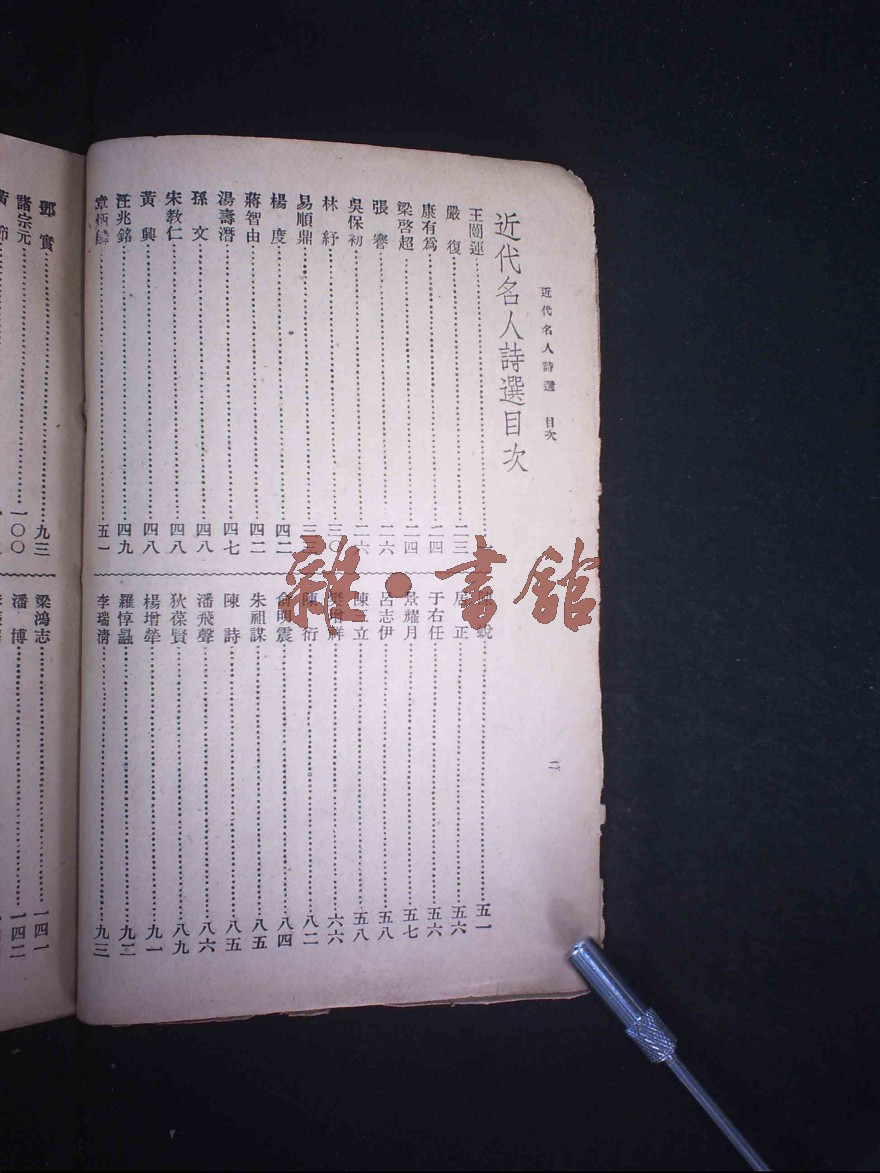 近代名人詩選 目次
二
近代名人詩選目次
王闓運
嚴復 二三
康有爲 二四
梁啓超 二四
張謇 二六
吳保初 二六
林紓 三〇
易順鼎 三三
楊度 四二
蔣智由 四二
湯壽潛 四七
孫文 四八
宋教仁 四八
黃興 四八
汪兆銘 四九
章炳麟 五一
蛻 五一
居正 五六
于右任 五六
景耀月 五七
呂志伊 五八
陳三立 五八
樊增祥 六六
陳衍 八二
俞明震 八四
朱祖謀 八五
陳詩 八五
潘飛聲 八六
狄葆賢 八九
楊增犖 九一
羅惇曧 九二
李瑞清 九三
鄧實 九三
諸宗元 一〇〇
黃節
梁鴻志 一四一
潘博 一四二
雜·書館